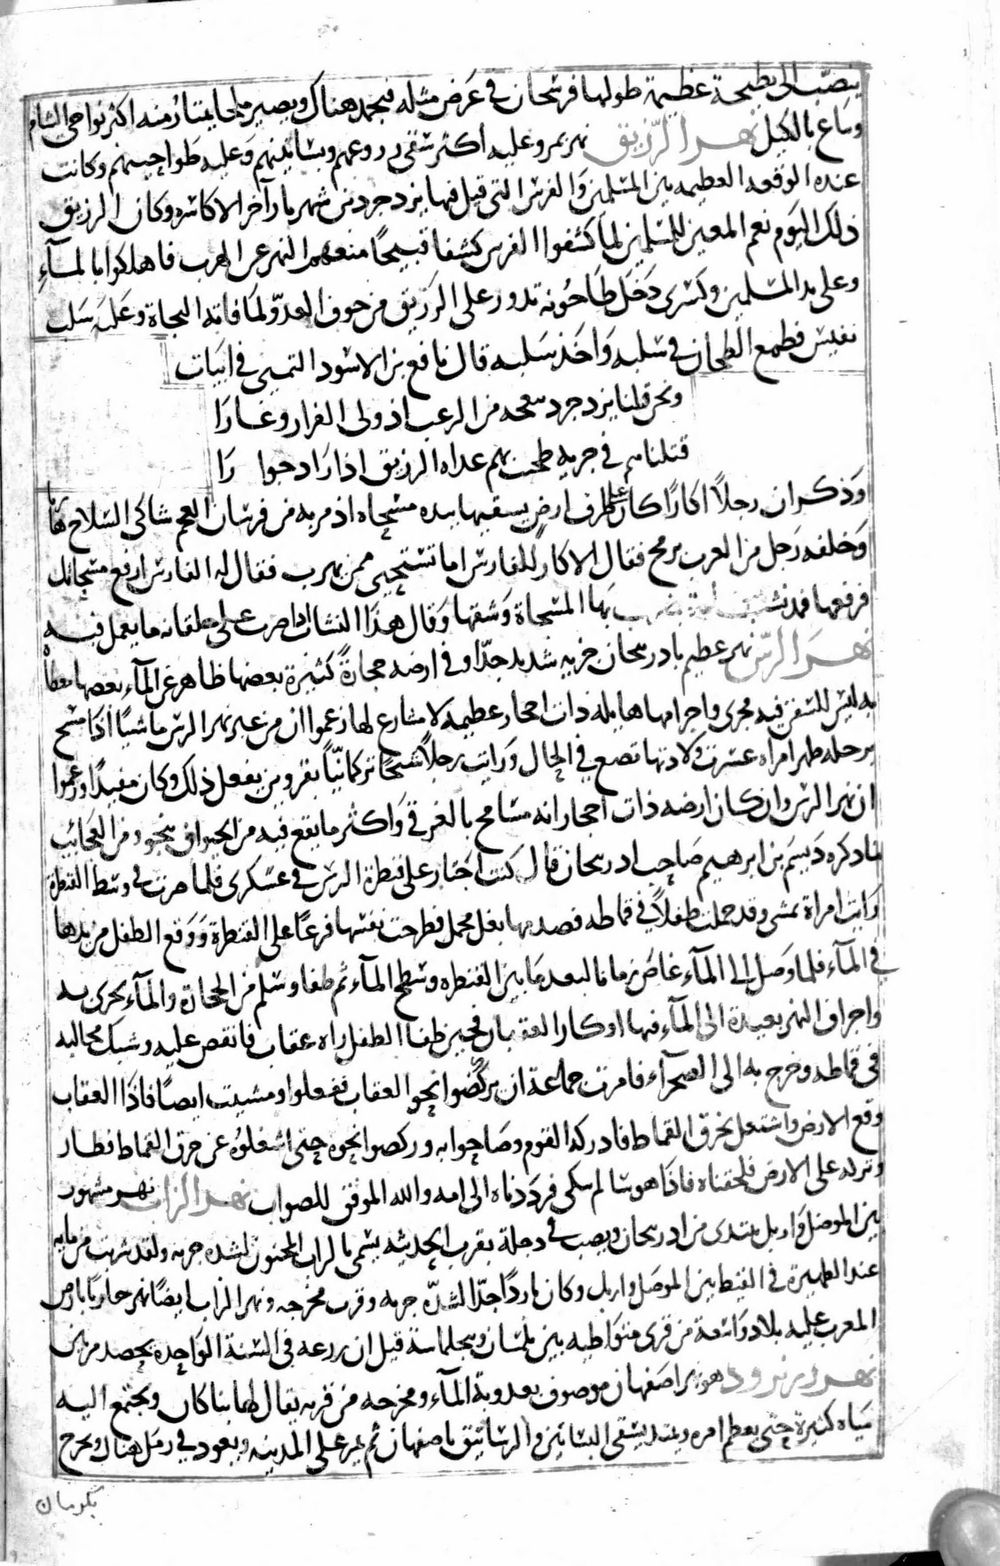 ينصب الى بطيحة عظيمة طولها فرسخان في عرض مثله فيجمد هناك ويصير ملحا يمتار منه اكثر نواحى الشام
ويباع بالكيل نهر الرزيق نهر بمرو عليه اكثر سقى زروعهم وبساتينهم وعليه طواحينهم وكانت
عنده الوقعه العظيمه بين المسلمين والفرس التى قتل فيها يزدجرد بن شهريار آخر الاكاسره وكان الرزيق
ذلك اليوم نعم المعين للمسلمين لما كشفوا الفرس كشفا قبيحا منعهم النهر عن الهرب فاهلكوا بالمآء
وعلى يد المسلمين وكسرى دخل طاحونه تدور على الرزيق من خوف العدو لما فاته النجاة وعليه سلب
نفيس فطمع الطحان في سلبه واخذ سلبه قال نافع بن الاسود التميمى في ابيات
ونحن قتلنا يزدجرد ببعجه من الرعب اذ ولى الفرار وغارا
قتلناهم في حربه طحنت بهم غداه الرزيق اذ اراد حوارا
وذكر ان رجلا اكارا كان على طرف ارض يسقيها بيده مسحاه اذ مر به من فرسان العجم شاكى السلاح
وخلفه رجل من العرب برمح فقال الاكار للفارس اما تستحيى ممن تهرب فقال له الفارس ارفع مسحاتك
فرفعها فمد نشابته بها المسحاة وشقها وقال هذا النشاب اذا ضرب على حلقاته ما يعمل فيه
نهر الرس نهر عظيم باذربيجان جريه شديد جدا وفي ارضه حجارة كثيرة بعضها ظاهر عن المآء بعضها مغطاة
به ليس للسفن فيه مجرى واجرافها هايله ذات احجار عظيمة لا مشارع لها زعموا ان من عبر نهر الرس ماشيا اذا مسح
برجله ظهر امراه عسرت ولادتها تضع في الحال ورايت رجلا شيخا تركمانيا بقزوين يفعل ذلك وكان مفيدا وزعموا
ان نهر الرس وان كان ارضه ذات احجار انه مسامح بالغرقى واكثر ما يقع فيه من الحيوان ينجو ومن العجائب
ما ذكره ديسم بن ابرهيم صاحب اذربيجان قال كنت اجتاز على قنطرة الرس في عسكرى فلما صرت في وسط القنطرة
رايت امراة تمشى وقد حملت طفلا في قماطه فصدمها بغل محمل فطرحت نفسها فزعا على القنطرة ووقع الطفل من يدها
في المآء فلما وصل الى المآء غاص زمانا لبعد ما بين القنطره وسطح المآء ثم طفا وسلم من الحجارة والمآء يجرى به
واجراف النهر بعيدة الى المآء فيها اوكار العقبان فحين طفا الطفل راه عقاب فانقض عليه وشبك مخالبه
في قماطه وخرج به الى الصحرآء فامرت جماعة ان يركضوا نحو العقاب ففعلوا ومشيت ايضا فاذا العقاب
وقع الارض واشتغل بخرق القماط فادركه القوم وصاحوا به وركضوا نحوه حتى اشغلوه عن خرق القماط فطار
وتركه على الارض فلحقناه فاذا هو سالم يبكى فرددناه الى امه والله الموفق للصواب نهر الزاب نهر مشهور
بين الموصل واربل يبتدى من اذربيجان ويصب في دجلة بقرب الحديثه يسمى بالزاب المجنون لشده جريه ولقد شربت من مايه
عند الظهيرة في القيظ بين الموصل واربل وكان باردا جدا لشدة جريه وقرب مخرجه ونهر الزاب ايضا نهر جار بارض
المغرب عليه بلاد واسعة من قرى متواطيه بين تلمسان وسجلماسة قيل ان زرعه في السنة الواحده يحصد مرتين
نهر زرنرود هو نهر اصفهان موصوف بعذوبة المآء ومخرجه من قريه يقال لها بناكان ويجتمع اليه
مياه كثيرة حتى يعظم امره ويمتد يسقى البساتين والرساتيق باصفهان ثم يمر على المدينه ويعود في رمل هناك ويخرج
بكرمان